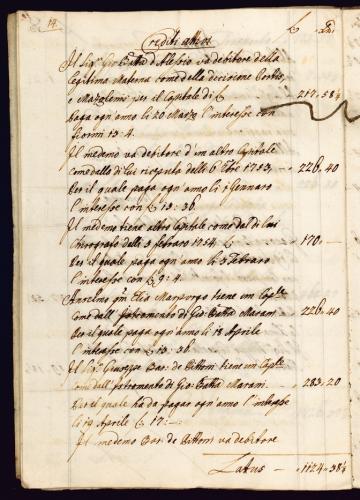 14
Crediti attivi
Il Sig.r Gio: Batta d'Alessio va debitore della
legitima Materna come della decisione
e per il Capitale di £ 217.58½
Paga ogn'anno li 20 Marzo l'interesse con
fiorini 13:4.
Il medemo va debitore d'un altro Capitale
come dallo di lui delli 6 7bre 1753, 226.40
Per il quale paga ogn'anno li p.o Gennaro
l'interesse con £ 13:36
Il medemo tiene altro Capitale come dal di lui
Chirografo delli 3 febraro 1754. £ 170.
Per il quale paga ogn'anno li 3 febraro
l'interesse con £ 9:4.
Anselmo q.m Elia Marpurgo tiene un Cap.le
come dall'Istromento di Gio: Batta Marani 226.40
Per il quale paga ogn'anno li 18 Aprile
l'interesse con £ 13:36.
Il Sig.r Giuseppe Bar: de Bottoni tiene un Cap.le
come dall'Istromento di Gio: Batta Marani. 283.20
Per il quale ha da pagar ogn'anno l'interesse
li 19 Aprile £ 17:—
Il medemo Bar: de Bottoni va debitore
Latus 1124.38½